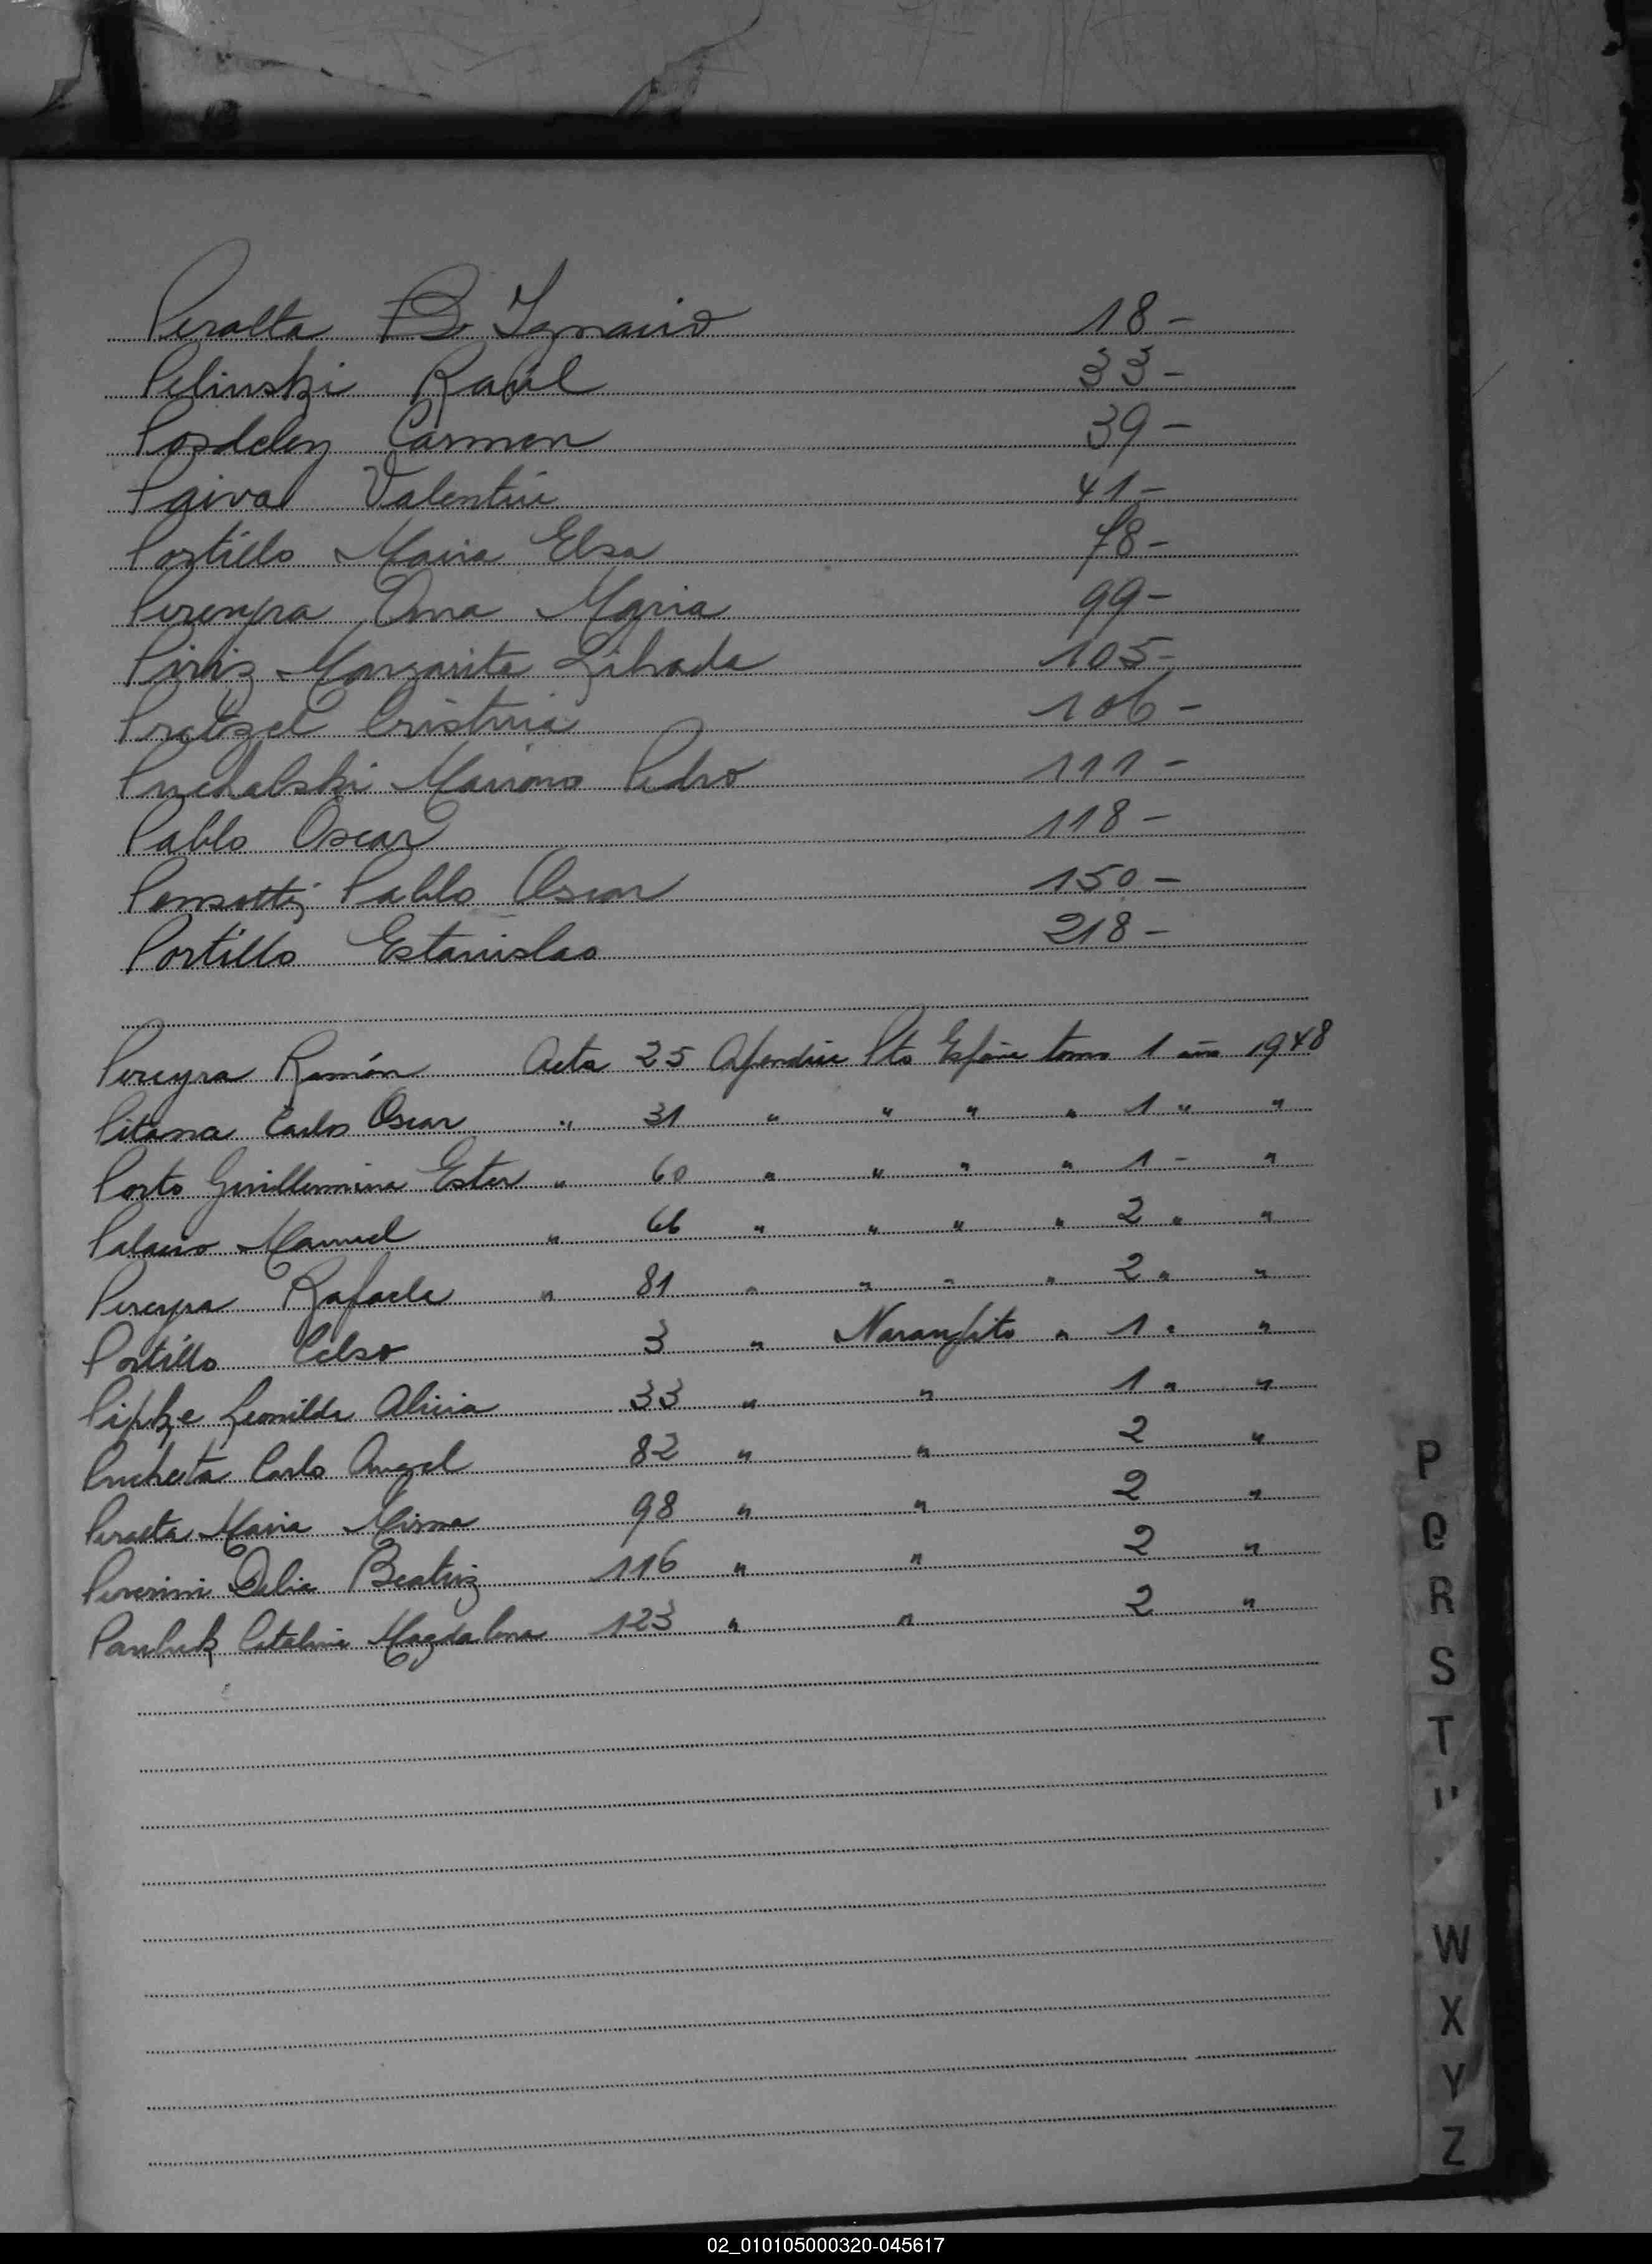 Peralta Ignacio 18-
Pelinski Raúl 33-
Posdeley Carmen 39-
Paiva Valentin 41-
Portillo Maria Elsa 78-
Pereyra Ana Maria 99-
Piriz Margarita Librada 105-
Pretzel Cristina 106-
Puchalski Mariano Pedro 111-
Pablo Oscar 118-
Pensotti Pablo Oscar 150-
Portillo Estanislao 218-
Pereyra Ramón Acta 25 Apendice Pto Esp tomo 1 año 1948
Pitana Carlos Oscar " 31 " " " " 1 " "
Porto Guillermina Ester " 60 " " " " 1 - "
Palacio Manuel " 66 " " " " 2 " "
Pereyra Rafaela " 81 " " " " 2 " "
Portillo Celso 3 " Naranjito " 1 " "
Pipke Leonilda Alicia 33 " " 1 " "
Pucheta Carlo Angel 82 " " 2 "
Peralta Maria Mirna 98 " " 2 "
Pererini Delia Beatriz 116 " " 2 "
Pawluk Catalina Magdalena 123 " " 2 "
P
Q
R
S
T
W
X
Y
Z
02_010105000320-045617